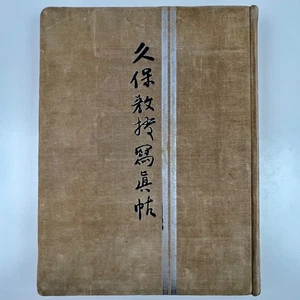 久保教授寫眞帖